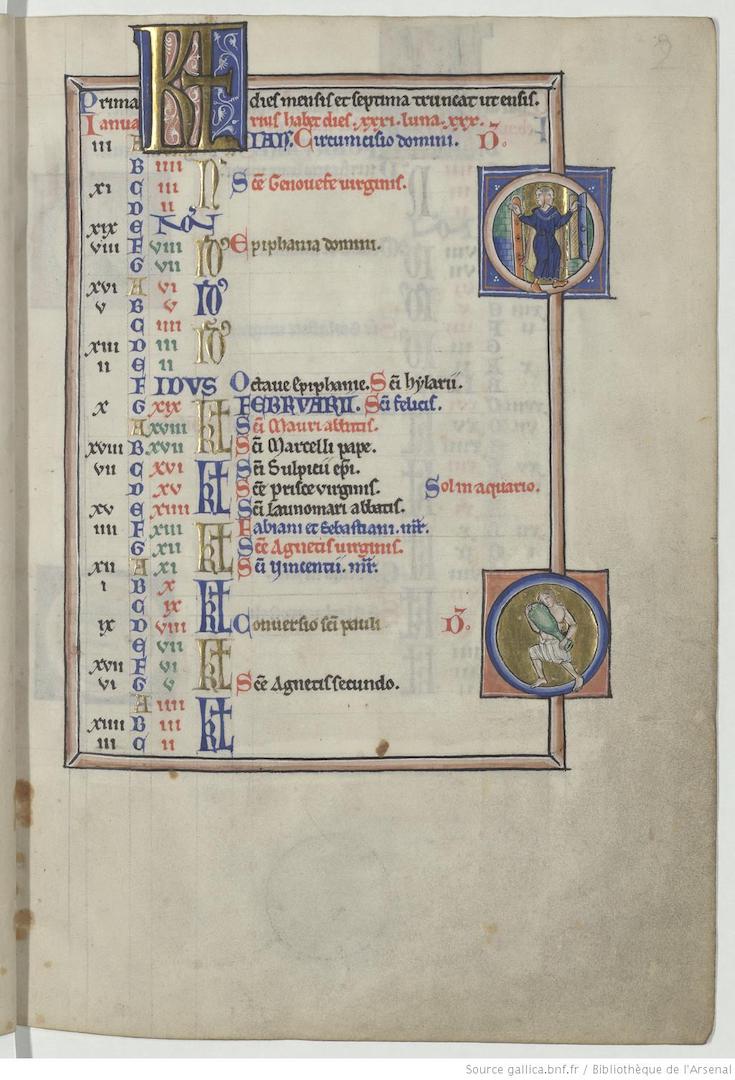 KL
Prima dies mensis et septima truncat ut ensis.
Ianuarius habet dies .xxxi. luna .xxx.
iii A IAN̄. Circumcisio domini. D̄.
B iiii N̄
xi C iii Sc̄e Genouefe uirginis.
D ii
xix E NON̄
viii F viii ID' Epiphania domini.
G vii
xvi A vi ID'
v B v
C iiii ID'
xiii D iii
ii E ii
F IDVS Octaue epiphanie. Sc̄i hylarii.
x G xix KL FEBRVARII. Sc̄i felicis.
A xviii Sc̄i Mauri abbatis.
xviii B xvii Sc̄i Marcelli pape.
vii C xvi KL Sc̄i Sulpicii ep̄i.
D xv Sc̄e prisce uirginis. Sol in aquario.
xv E xiiii Sc̄i Launomari abbatis.
iiii F xiii KL Fabiani et Sebastiani. mr̄.
G xii Sc̄e Agnetis uirginis.
xii A xi Sc̄i Vincentii. mr̄.
i B x KL
C ix
ix D viii Conuersio sc̄i pauli D̄.
E vii KL
xvii F vi
vi G v Sc̄e Agnetis secundo.
A iiii KL
xiiii B iii
iii C ii
Source gallica.bnf.fr / Bibliothèque de l'Arsenal